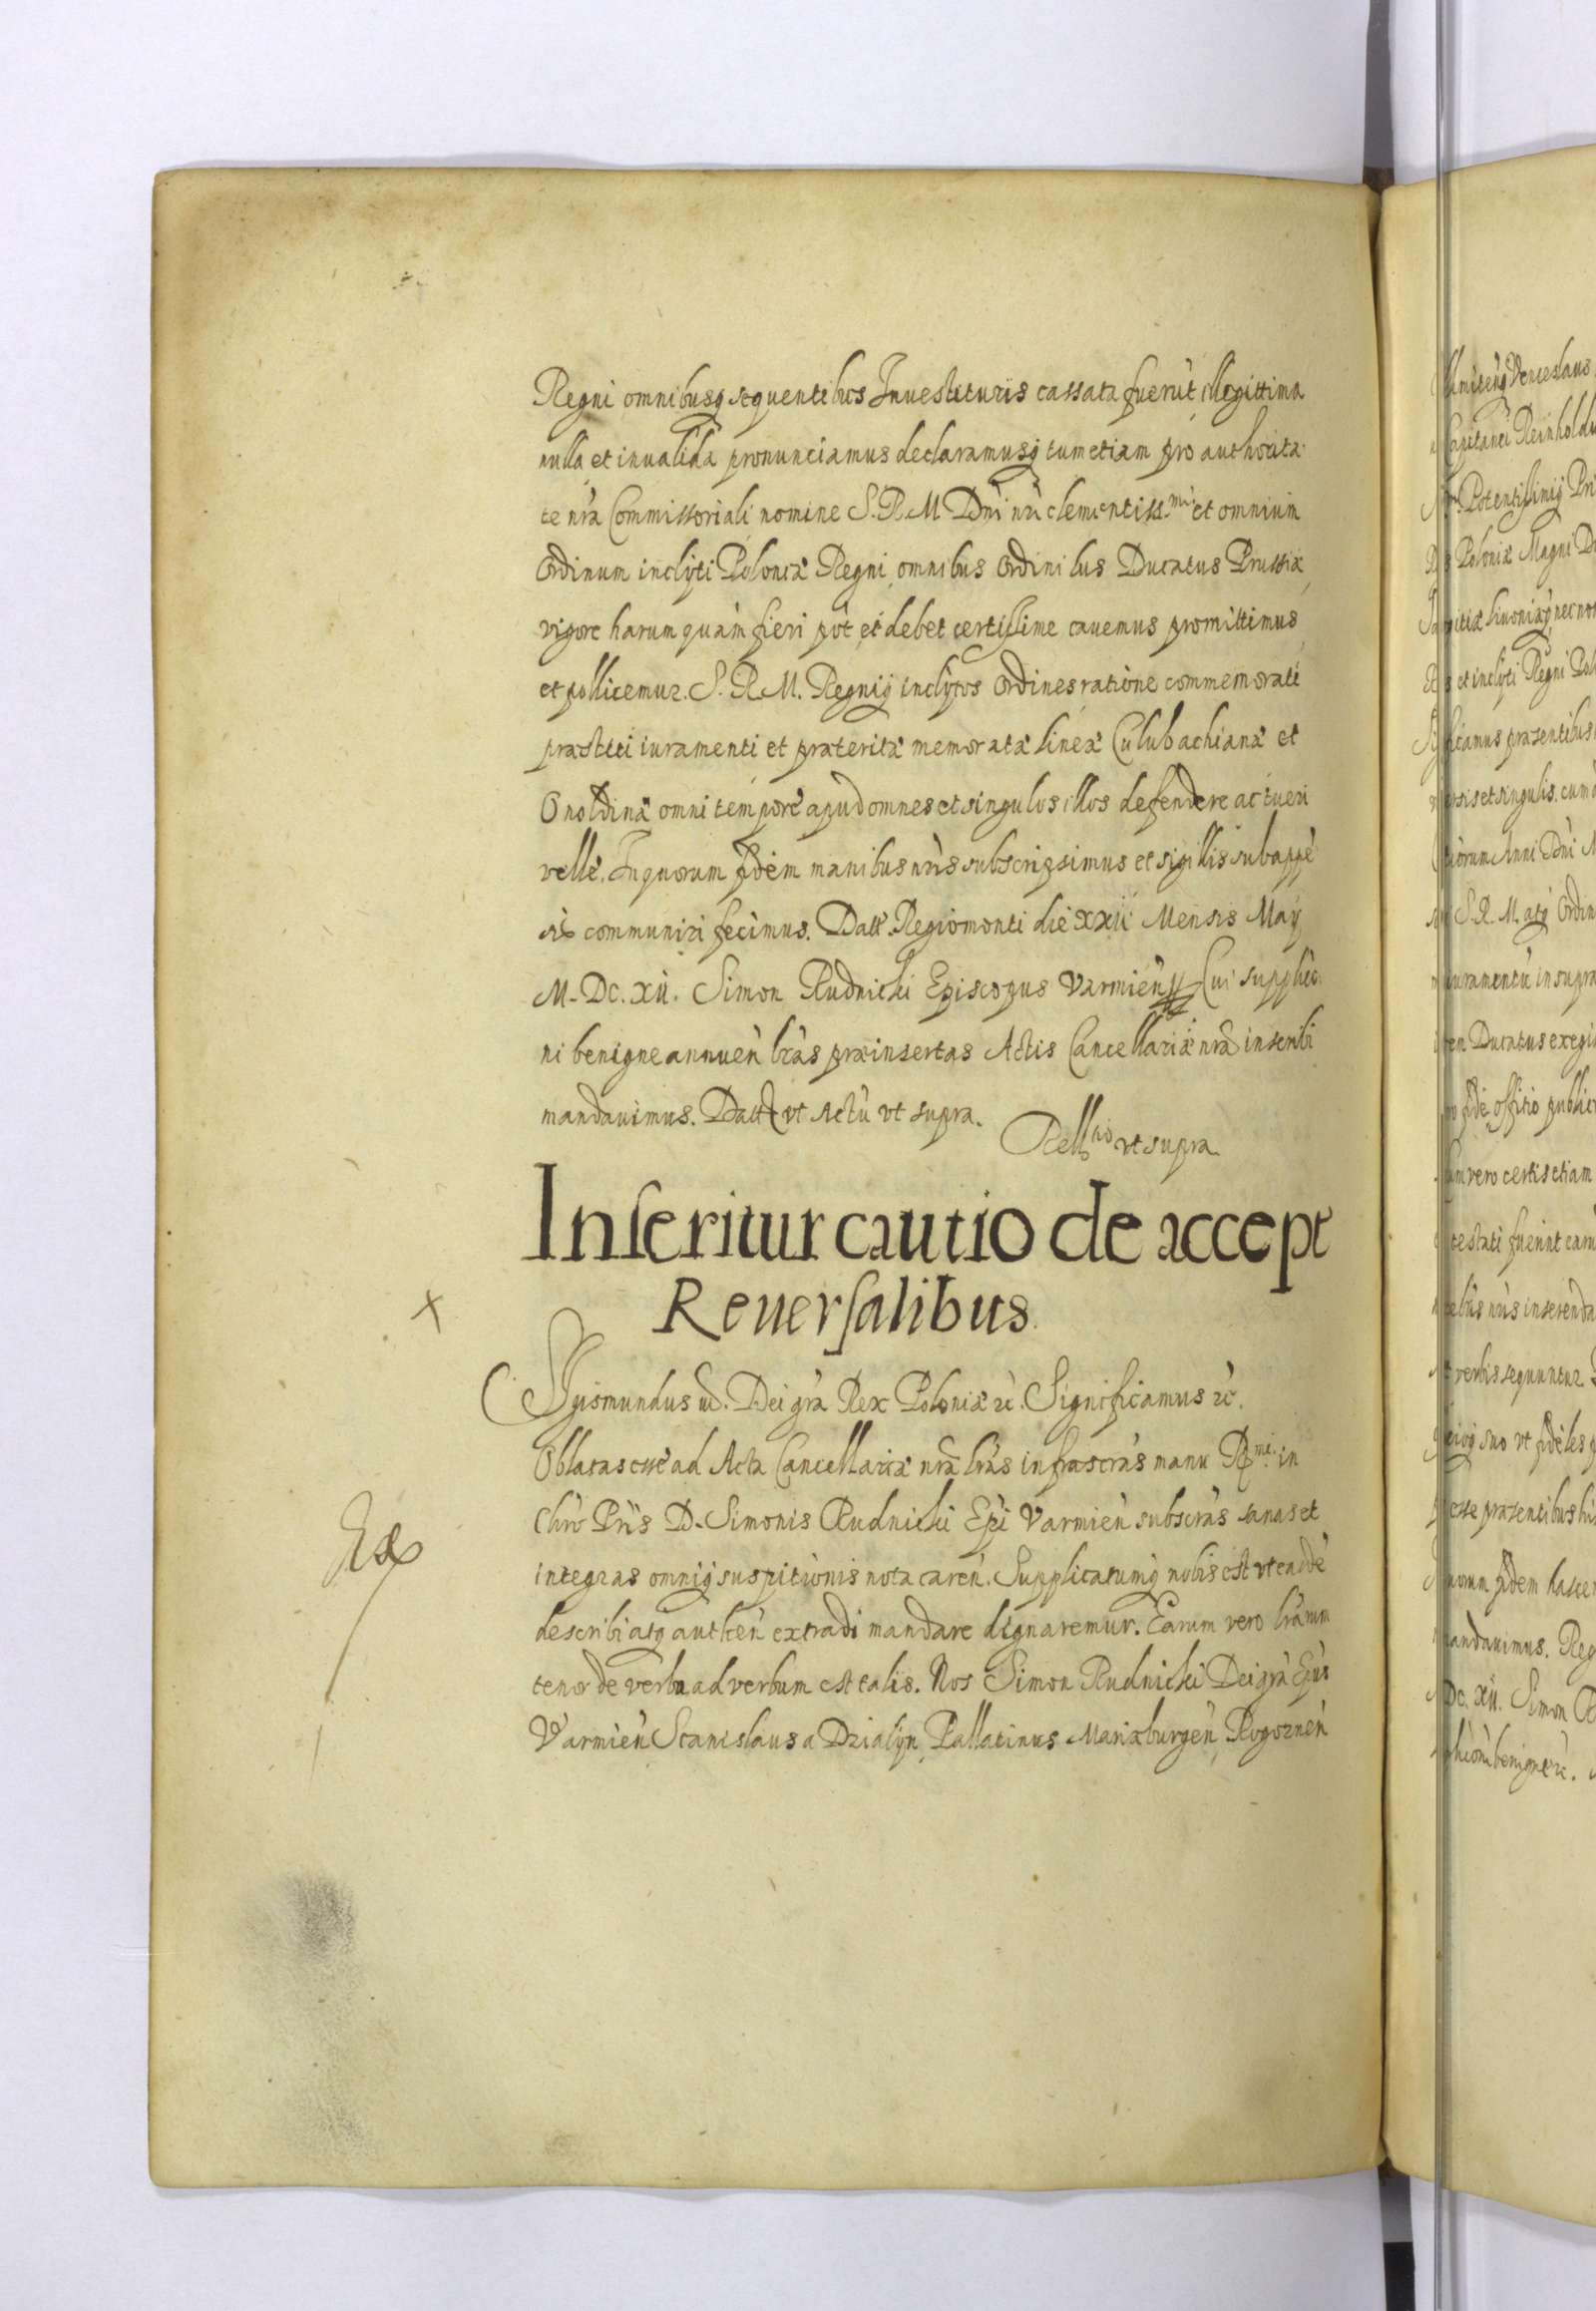 Regni omnibusq sequentibus Inuestituris cassata fuerūt illegittima
nulla et inualida pronunciamus declaramusq tumetiam pro authorita
te nrā Commissoriali nomine S. R. M Dni nri clementiss.mi et omnium
Ordinum inclyti Poloniæ Regni omnibus Ordinibus Ducatus Prussiæ
vigore harum quam fieri pōt et debet certissime cauemus promittimus
et pollicemur. S. R. M. Regniq inclytos Ordines ratione commemorati
præstiti iuramenti et præteritæ memoratæ lineæ Culubachianæ et
Onoldinæ omni tempore apud omnes et singulos illos defendere ac tueri
velle. In quorum fidem manibus nris subscripsimus et sigillis subappē
sis communiri fecimus. Datt. Regiomonti die XXII Mensis Maÿ
M. DC. XII. Simon Rudnicki Episcopus Varmien Cui supplico
ni benigne annuen lrās præinsertas Actis Cancellariæ nrā inscribi
mandauimus. Datt vt Actū vt supra.
Rellõ vt supra.
Inseritur cautio de accept
Reuersalibus
X
Sigismundus IIII. Dei grā Rex Poloniæ rc. Significamus rc.
Oblatas esse ad Acta Cancellariæ nrā lrās infrascrās manu R.mi in
Chrō Pris D. Simonis Rudnicki Epi Varmien subscrās sanas et
Ex
integras omniq suspitionis nota caren. Supplicatumq nobis est vt easdē
describi atq authen extradi mandare dignaremur. Earum vero lrārum
tenor de verbo ad verbum est talis. Nos Simon Rudnicki Dei grā Epus
Varmien Stanislaus a Dzialyn Pallatinus Mariæburgen Rogoznen